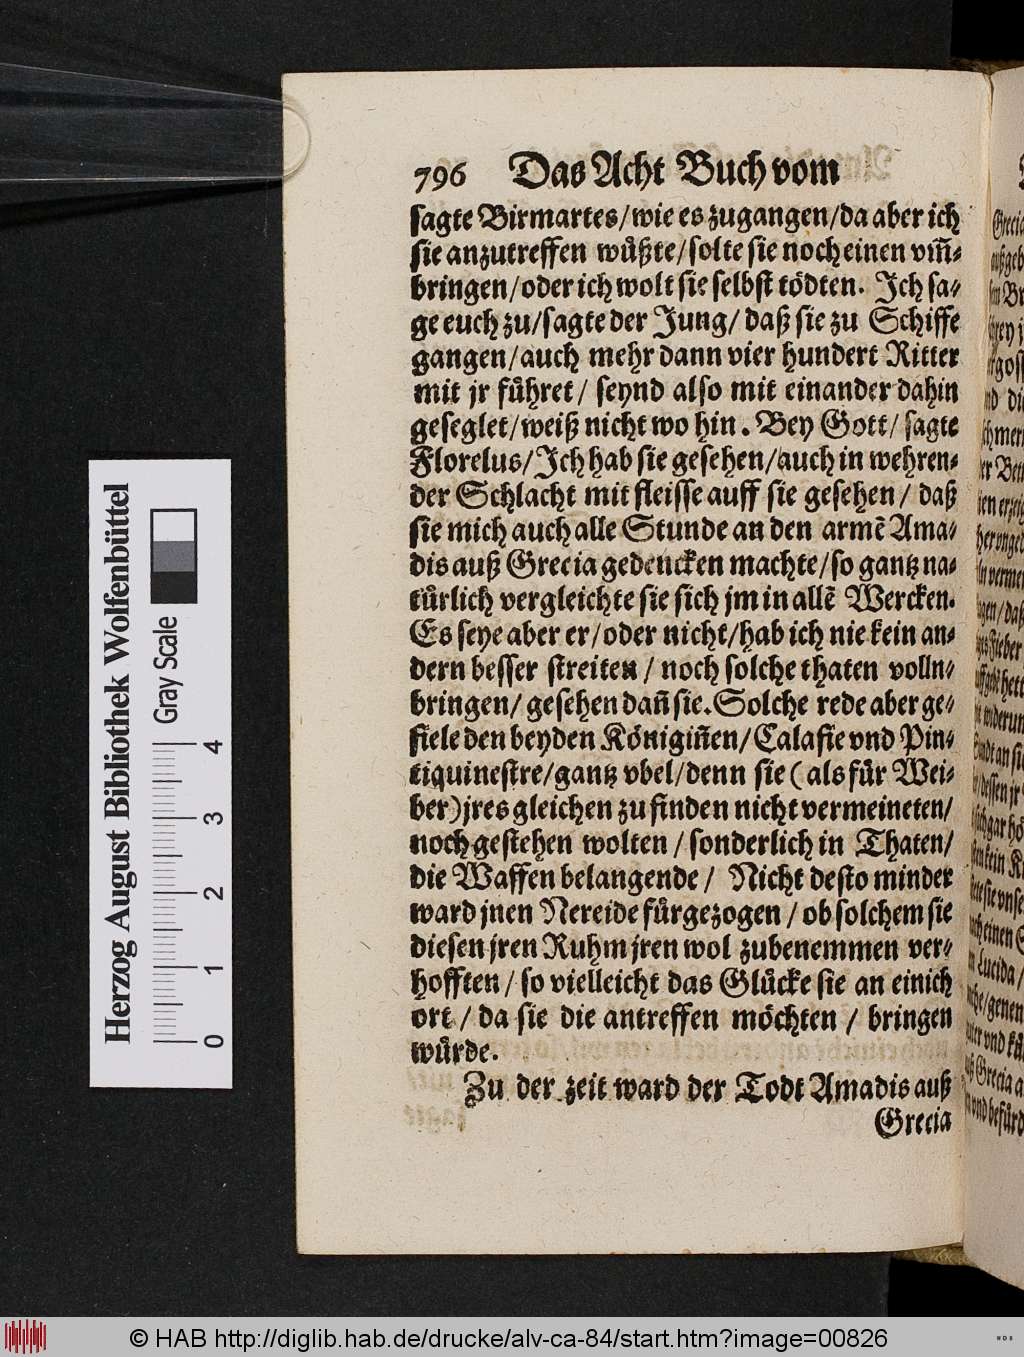 796 Das Acht Buch vom
sagte Birmartes/wie es zugangen/da aber ich
sie anzutreffen wůßte/solte sie noch einen vm̃-
bringen/oder ich wolt sie selbst tödten. Ich sa-
ge euch zu/sagte der Jung/ daß sie zu Schiffe
gangen/auch mehr dann vier hundert Ritter
mit jr führet/ seynd also mit einander dahin
geseglet/weiß nicht wo hin. Bey Gott/ sagte
Florelus/Ich hab sie gesehen/auch in wehren-
der Schlacht mit fleisse auff sie gesehen/ daß
sie mich auch alle Stunde an den armẽ Ama-
dis auß Grecia gedencken machte/so gantz na-
türlich vergleichte sie sich jm in allẽ Wercken.
Es seye aber er/oder nicht/hab ich nie kein an-
dern besser streiten/ noch solche thaten volln-
bringen/ gesehen dañ sie. Solche rede aber ge-
fiele den beyden Königiñen/Calafie vnd Pin-
tiquinestre/gantz vbel/denn sie (als für Wei-
ber) jres gleichen zu finden nicht vermeineten/
noch gestehen wolten/ sonderlich in Thaten/
die Waffen belangende/ Nicht desto minder
ward jnen Nereide fürgezogen/ ob solchem sie
diesen jren Ruhm jren wol zubenemmen ver-
hofften/ so vielleicht das Glücke sie an einich
ort/ da sie die antreffen möchten/ bringen
würde.
Zu der zeit ward der Todt Amadis auß
Grecia
Herzog August Bibliothek Wolfenbüttel
Gray Scale
0 1 2 3 4
© HAB http://diglib.hab.de/drucke/alv-ca-84/start.htm?image=00826